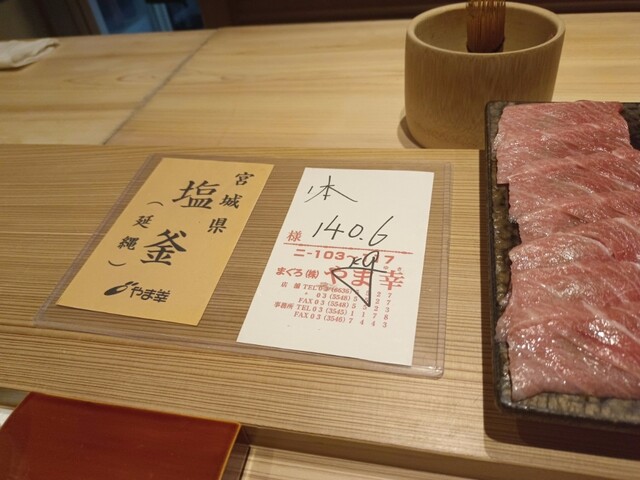 宮城県
塩釜
(延縄)
やま幸
本
140.6
様
ニ-103
まぐろ(株)やま幸
店舗 TEL
FAX 03(5548)
事務所 TEL 03(3545)1743
FAX 03(3546)7443